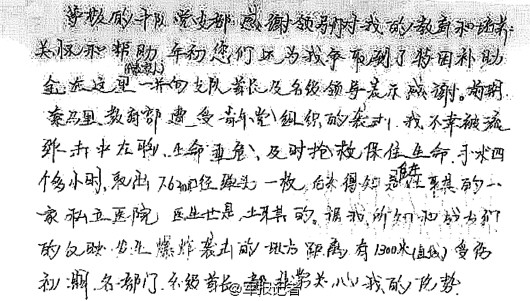 尊敬的支队党支部感谢领导对我的教育和培养
关怀和帮助 年初您们还为我争取到了特困补助
金 在这里一并向支队首长及各级领导表示感谢。前期
索马里教育部遭受青年党组织的袭击 我不幸被流
弹击中左胸、生命垂危、及时抢救保住生命 手术四
个多小时，取出7.62口径弹头一枚，后来得知是土耳其的一
家私立医院 医生也是土耳其的。据我所知和战友们
的反映 发生爆炸袭击的地方距离有1300米(直线) 受伤
初期 各部门 各级首长 都非常关心我的伤势
@军报记者